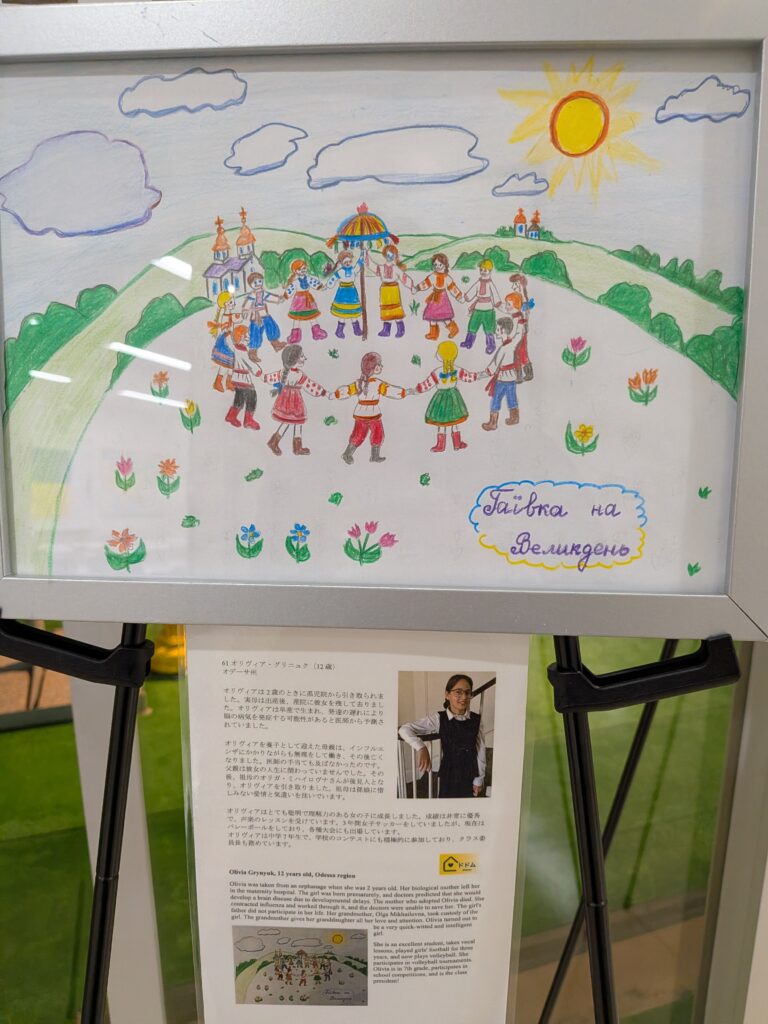 Гаївка на
Великдень
61 オリヴィア・グリニュク（12 歳）
オデーサ州
オリヴィアは 2 歳のときに孤児院から引き取られま
した。実母は出産後、産院に彼女を残して去りまし
た。オリヴィアは早産で生まれ、発達の遅れにより
脳の病気を発症する可能性があると医師から予測さ
れていました。
オリヴィアを養子として迎えた母親は、インフルエ
ンザにかかりながらも無理をして働き、その後亡く
なりました。医師の手当ても及ばなかったのです。
父親は彼女の人生に関わっていませんでした。その
後、祖母のオリガ・ミハイロヴナさんが後見人とな
り、オリヴィアを引き取りました。祖母は孫娘に惜
しみない愛情と気遣いを注いでいます。
オリヴィアはとても聡明で理解力のある女の子に成長しました。成績は非常に優秀
で、声楽のレッスンを受けています。3 年間女子サッカーをしていましたが、現在は
バレーボールをしており、各種大会にも出場しています。
オリヴィアは中学 7 年生で、学校のコンテストにも積極的に参加しており、クラス委
員長も務めています。
ドドム
Olivia Grynyuk, 12 years old, Odessa region
Olivia was taken from an orphanage when she was 2 years old. Her biological mother left her
in the maternity hospital. The girl was born prematurely, and doctors predicted that she would
develop a brain disease due to developmental delays. The mother who adopted Olivia died. She
contracted influenza and worked through it, and the doctors were unable to save her. The girl's
father did not participate in her life. Her grandmother, Olga Mikhailovna, took custody of the
girl. The grandmother gives her granddaughter all her love and attention. Olivia turned out to
be a very quick-witted and intelligent
girl.
She is an excellent student, takes vocal
lessons, played girls' football for three
years, and now plays volleyball. She
participates in volleyball tournaments.
Olivia is in 7th grade, participates in
school competitions, and is the class
president!
Гаївка на
Великдень